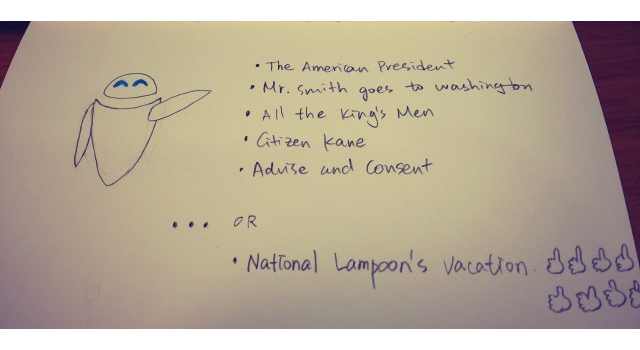 • The American President
• Mr. smith goes to washington
• All the King's Men
• Citizen Kane
• Advise and Consent
... OR
• National Lampoon's vacation.